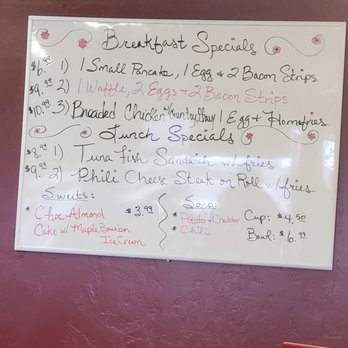 Breakfast Specials
$6.99 1) 1 Small Pancake, 1 Egg & 2 Bacon Strips
$9.99 2) 1 Waffle, 2 Eggs & 2 Bacon Strips
$10.99 3) Breaded Chicken w/Country Gravy 1 Egg & Homefries
Lunch Specials
$8.99 1) Tuna Fish Sandwich w/fries
$9.99 2) Phili Cheese Steak on Roll w/fries
Sweets:
* Choc-Almond $3.99
Cake w/Maple Bourbon
Ice Cream
Soup:
* Potato & Cheddar
* Chili
Cup: $4.50
Bowl: $6.99